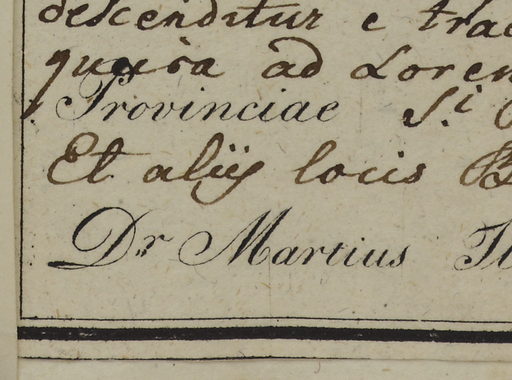 descenditur e trac
ad Loren
Provinciae S.i
Et aliis locis B
Dr. Martius It